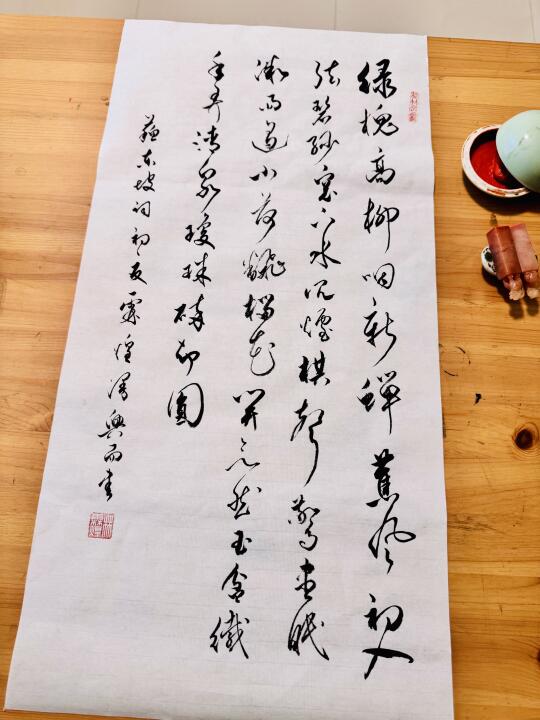 绿槐高柳咽新蝉薰风初入
弦碧纱窗下水沉煙棋声惊昼眠
微雨过小荷翻榴花開欲然玉盆纤
手弄清泉琼珠碎却圆
蘇东坡词初夏霖煌兴而书